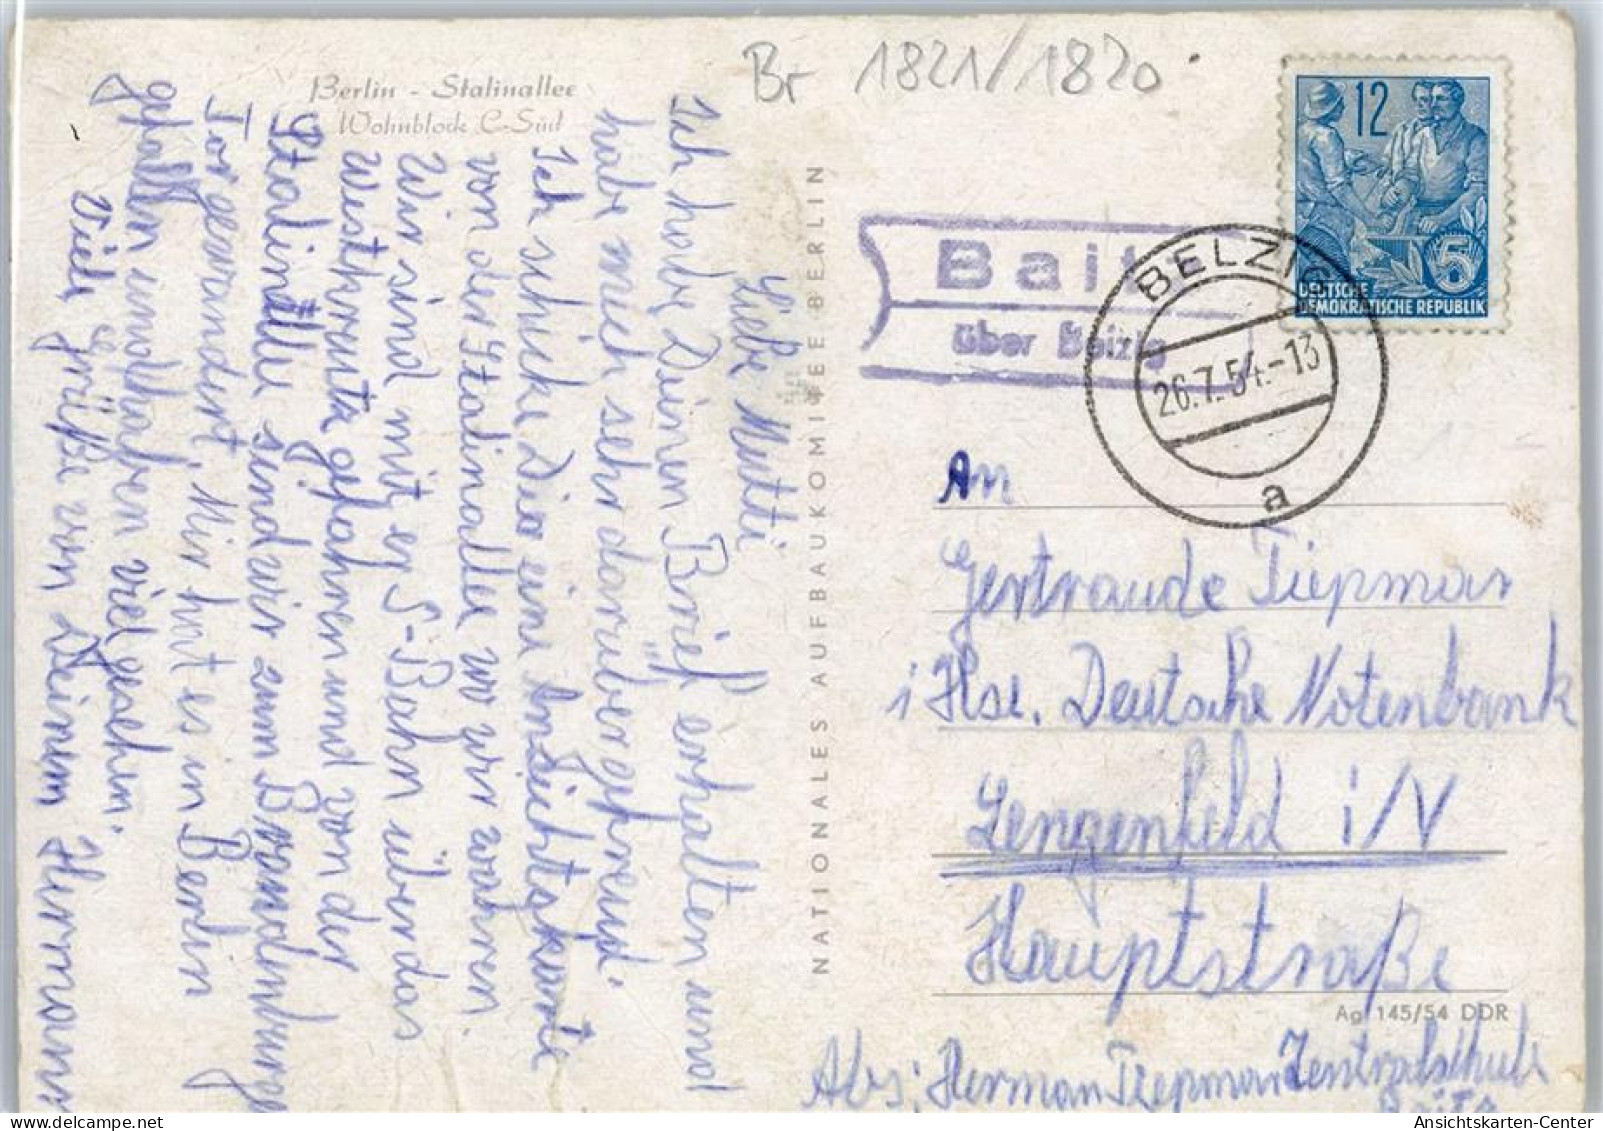 Berlin - Stalinallee
Wohnblock C-Süd
Br 1821/1820
Liebe Mutti
Ich habe Deinen Brief erhalten und
habe mich sehr darüber gefreud.
Ich schicke Dir eine Ansichtskarte
von der Stalinallee wo wir waren.
Wir sind mit er S-Bahn über das
Westkreuz gefahren und von der
Stalinallee sind wir zum Brandenburger
Tor gewandert. Mir hat es in Berlin
gefallen und haben viel gesehen.
Viele Grüße von Deinem Hermann
NATIONALES AUFBAUKOMITEE BERLIN
Baitz
über Belzig
BELZIG
26.7.54.-13
a
12
5
DEUTSCHE
DEMOKRATISCHE REPUBLIK
An
Gertraude Tiepmar
i Hse. Deutsche Notenbank
Lengenfeld i/V
Hauptstraße
Ag 145/54 DDR
Abs: Herman Tiepmar Zentralschule
Baitz
Ansichtskarten-Center